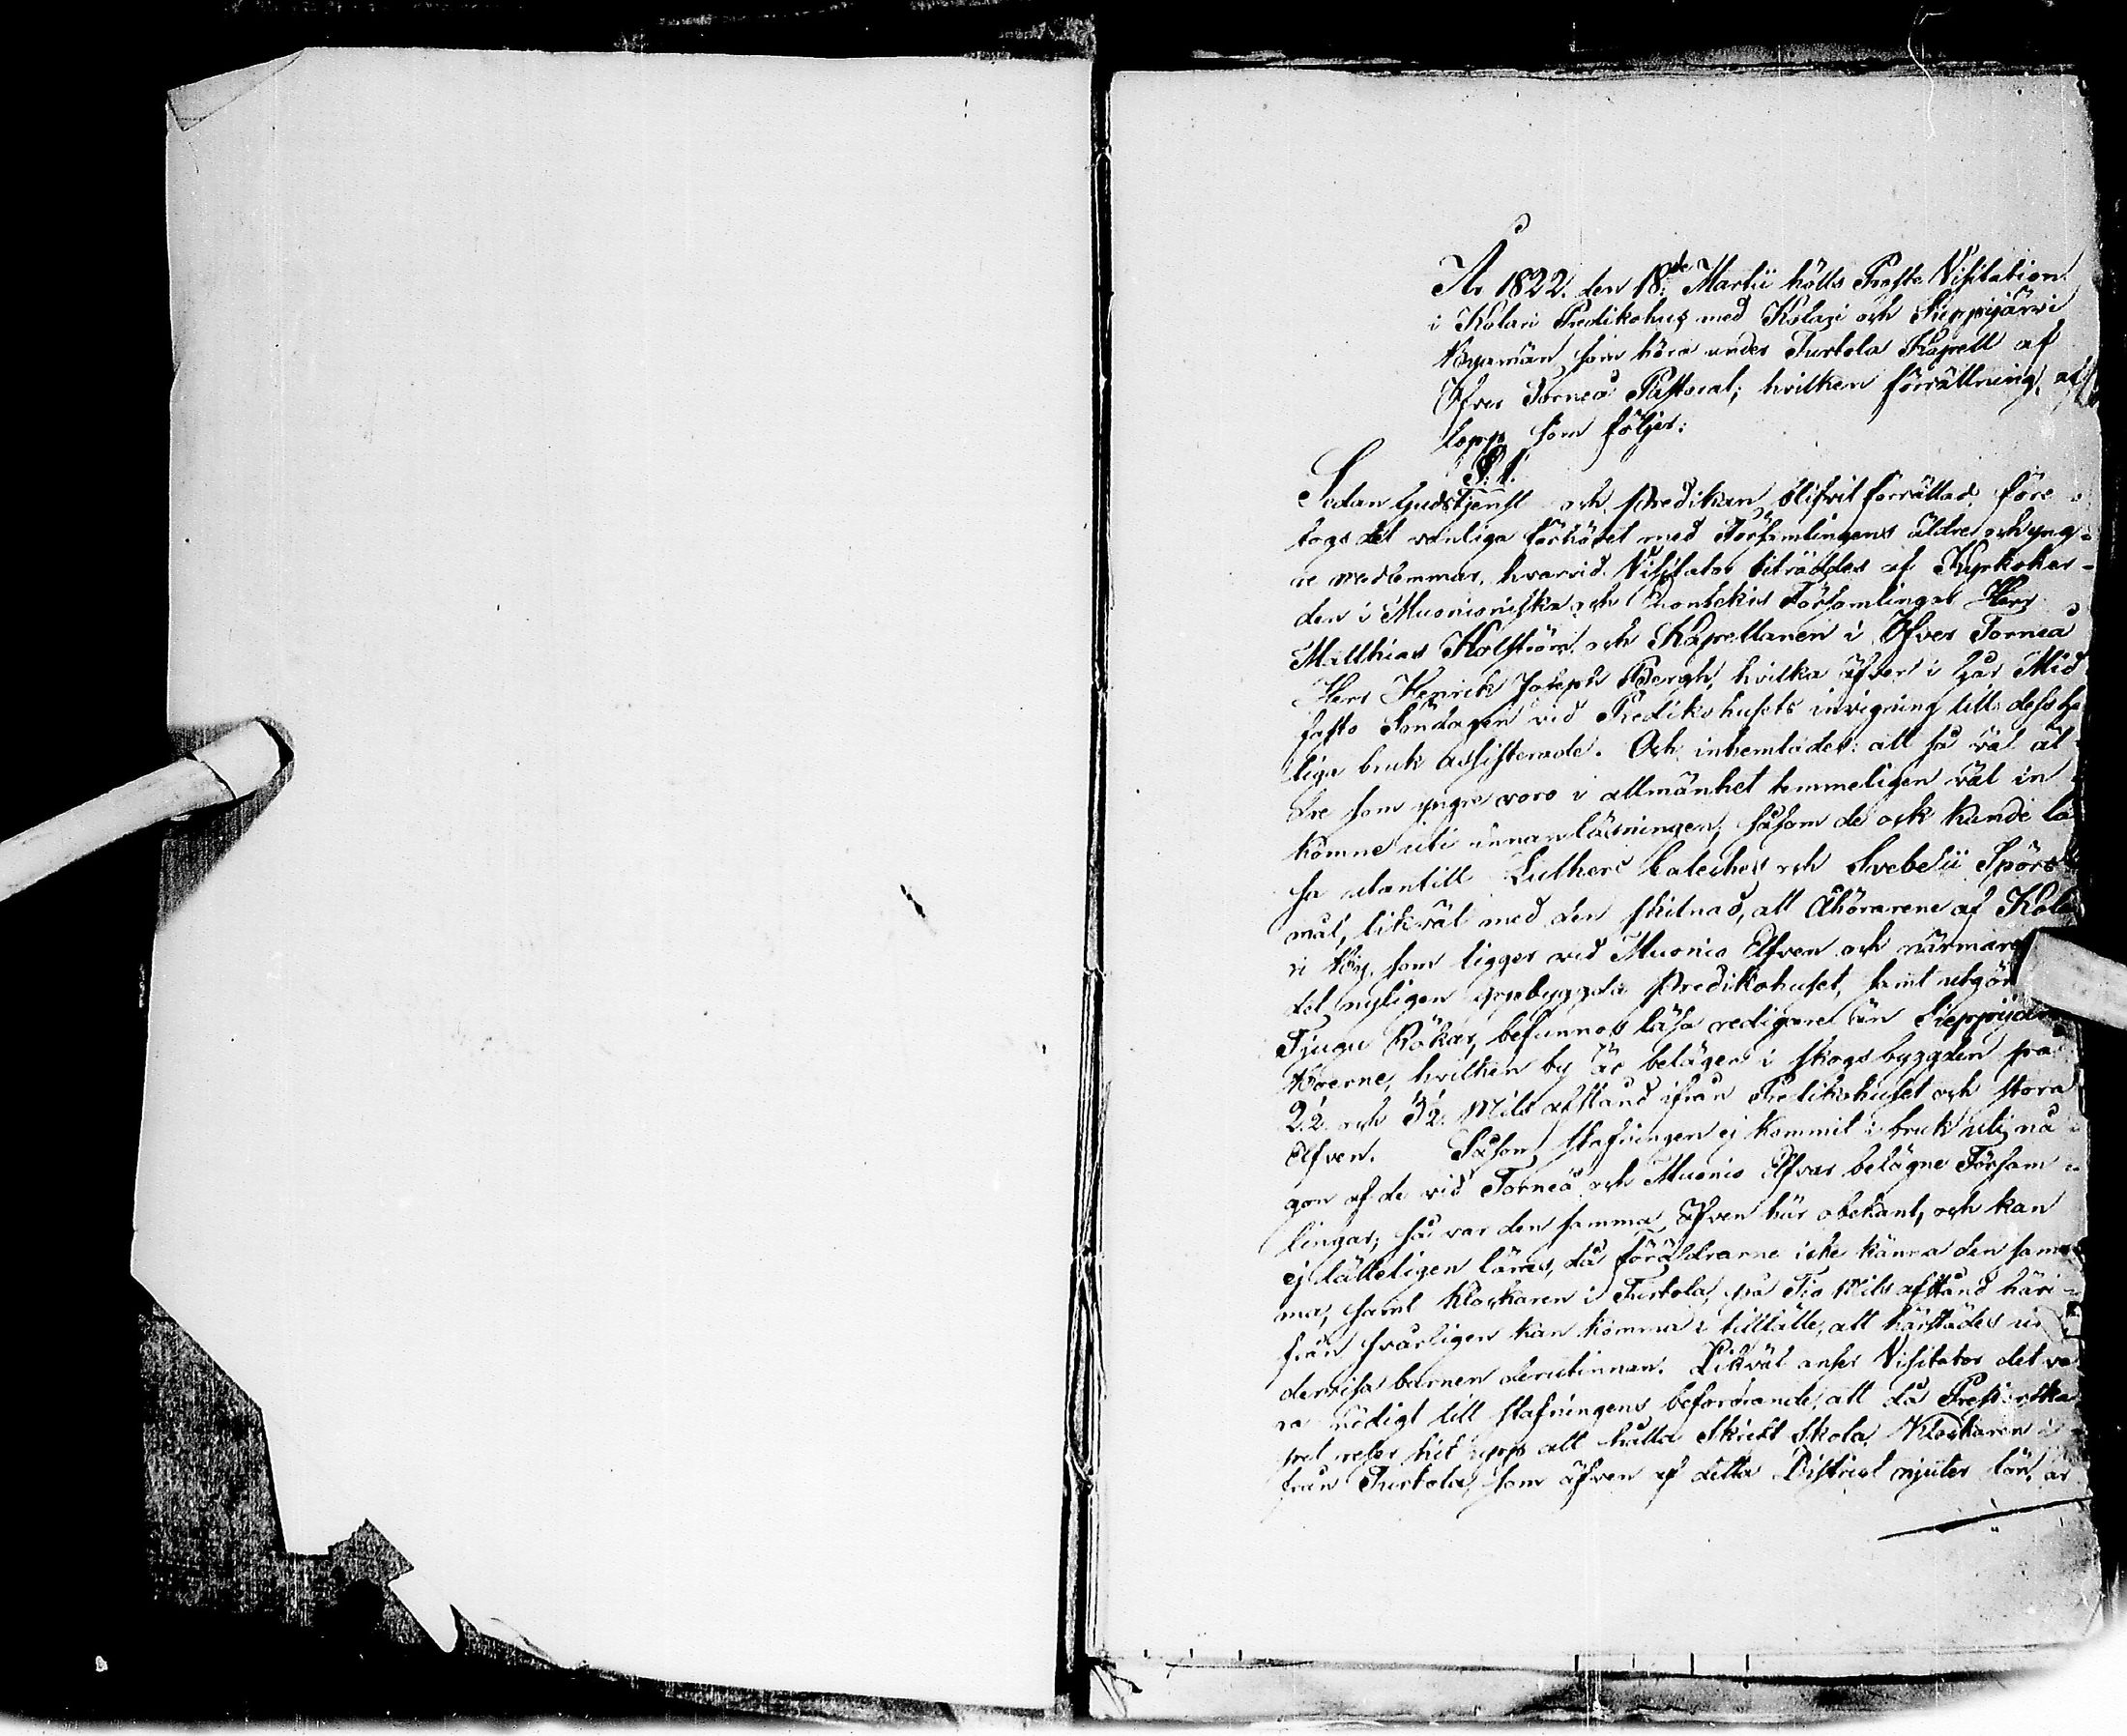 År 1822. den 18:de Martii hölls Proste Visitation
i Kolari Predikohus med Kolari och Sieppijärvi
Byamän, som höra under Turtola Kapell af
Öfver Torneå Pastorat; hvilken förrättning, af
lopp som följer:
§. 1.
Sedan Gudstjenst och predikan blifvit förrättad, före
togs det vanliga förhöret med Församlingens äldre och yng-
re medlemmar, hvarvid Visitator biträddes af Kyrkoher-
den i Muonioniska och Enontekis Församlingar Herr
Matthias Kolström och Kapellanen i Öfver Torneå
Herr Henrik Joseph Bergh, hvilka äfven i går Mid
fasto Söndagen vid Predikohusets invigning till dess he
liga bruk assisterade. Och inhemtades: att så väl äl
dre som yngre voro i allmänhet temmeligen väl in
komne uti innanläsningen, såsom de ock kunde lä
sa utantill Lutheri Cateches och Svebelii Spörs
mål, likväl med den skilnad, att Åhörarene af Kola
ri by, som ligger vid Muonio Elfven och närmare
det nyligen uppbyggda Predikohuset, samt utgör
Tjugu Rökar, befunnos läsa redigare än Sieppijär
boerne, hvilken by är belägen i skogsbyggden på
2½ och 3½ Mils afstånd ifrån Predikohuset och stora
Elfven. Såsom stafningen ej kommit i bruk uti nå
gon af de vid Torneå och Muonio Elfvar belägne Försam
lingar, så var den samma äfven här obekant, och kan
ej lätteligen läras, då föräldrarne icke känna den sam
ma, samt Klockaren i Turtola, på Tio Mils afstånd häri-
från svårligen kan komma i tillfälle, att härstädes un
dervisa barnen derutinnan. Likväl anser Visitator det va
ra nödigt till stafningens befordrande, att då Presterska
pet reser hit upp att hålla Skrift Skola, Klockaren i
från Turtola, som äfven af detta District njuter lön, är